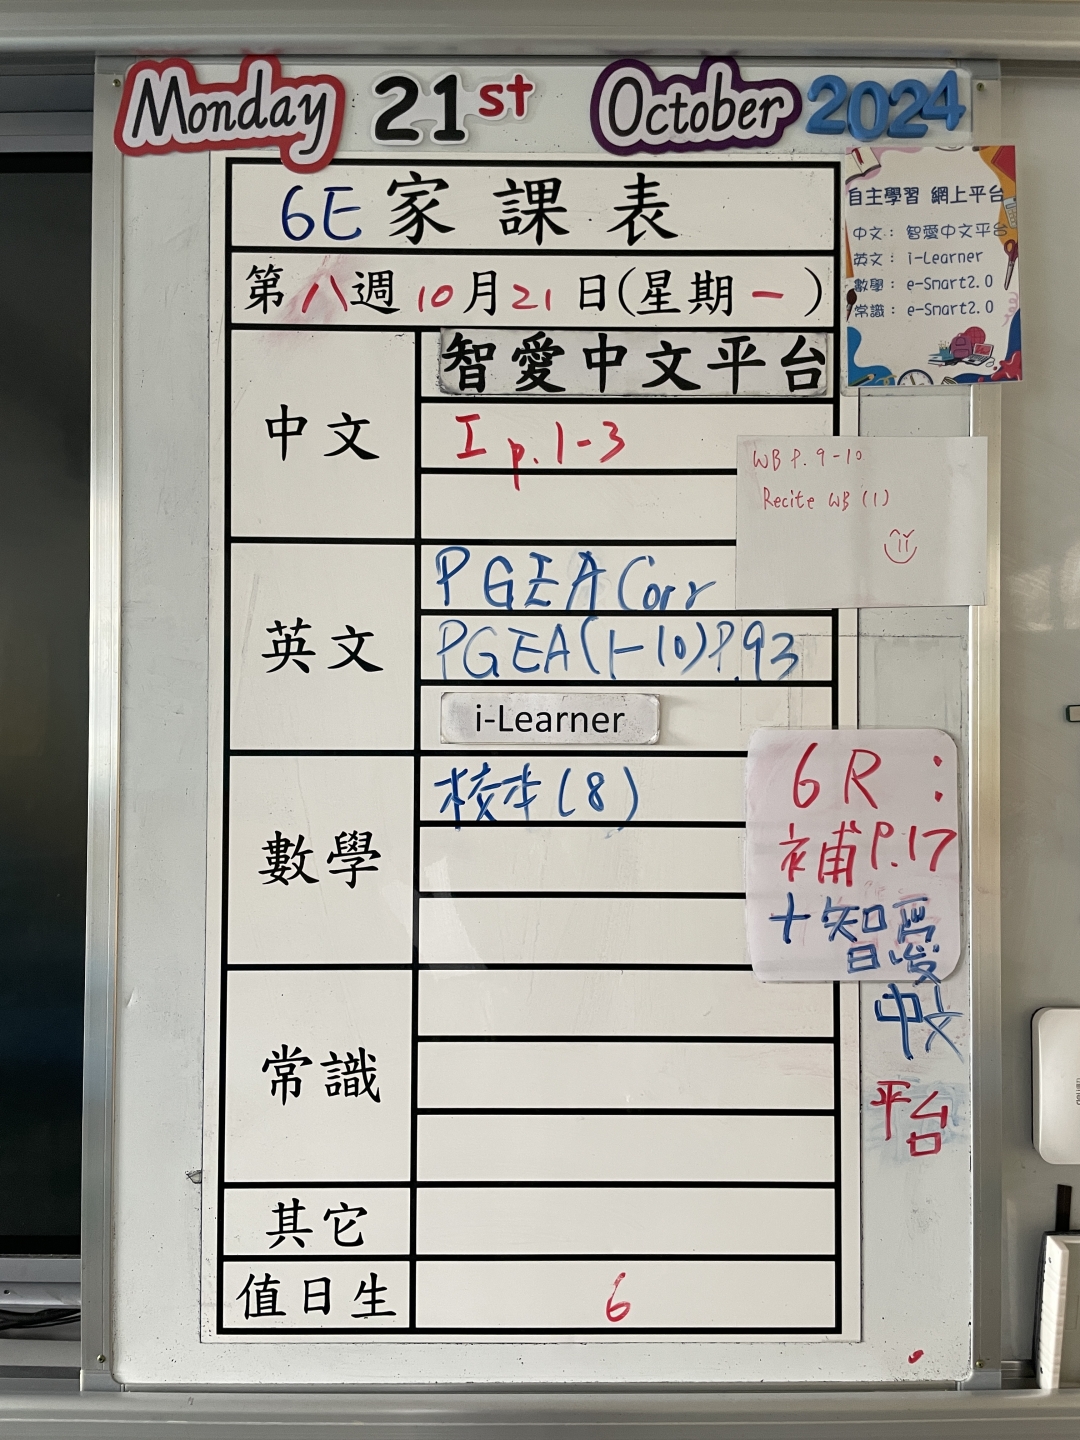 Monday 21st October 2024
6E 家課表
第八週10月21日(星期一)
自主學習 網上平台
中文： 智愛中文平台
英文： i-Learner
數學： e-Smart2.0
常識： e-Smart2.0
中文
智愛中文平台
I p.1-3
WB P. 9-10
Recite WB (1)
英文
PGEA Corr
PGEA(1-10)P.93
i-Learner
數學
校本(8)
6R：
補P.17
+智愛
中文
平台
常識
其它
值日生
6